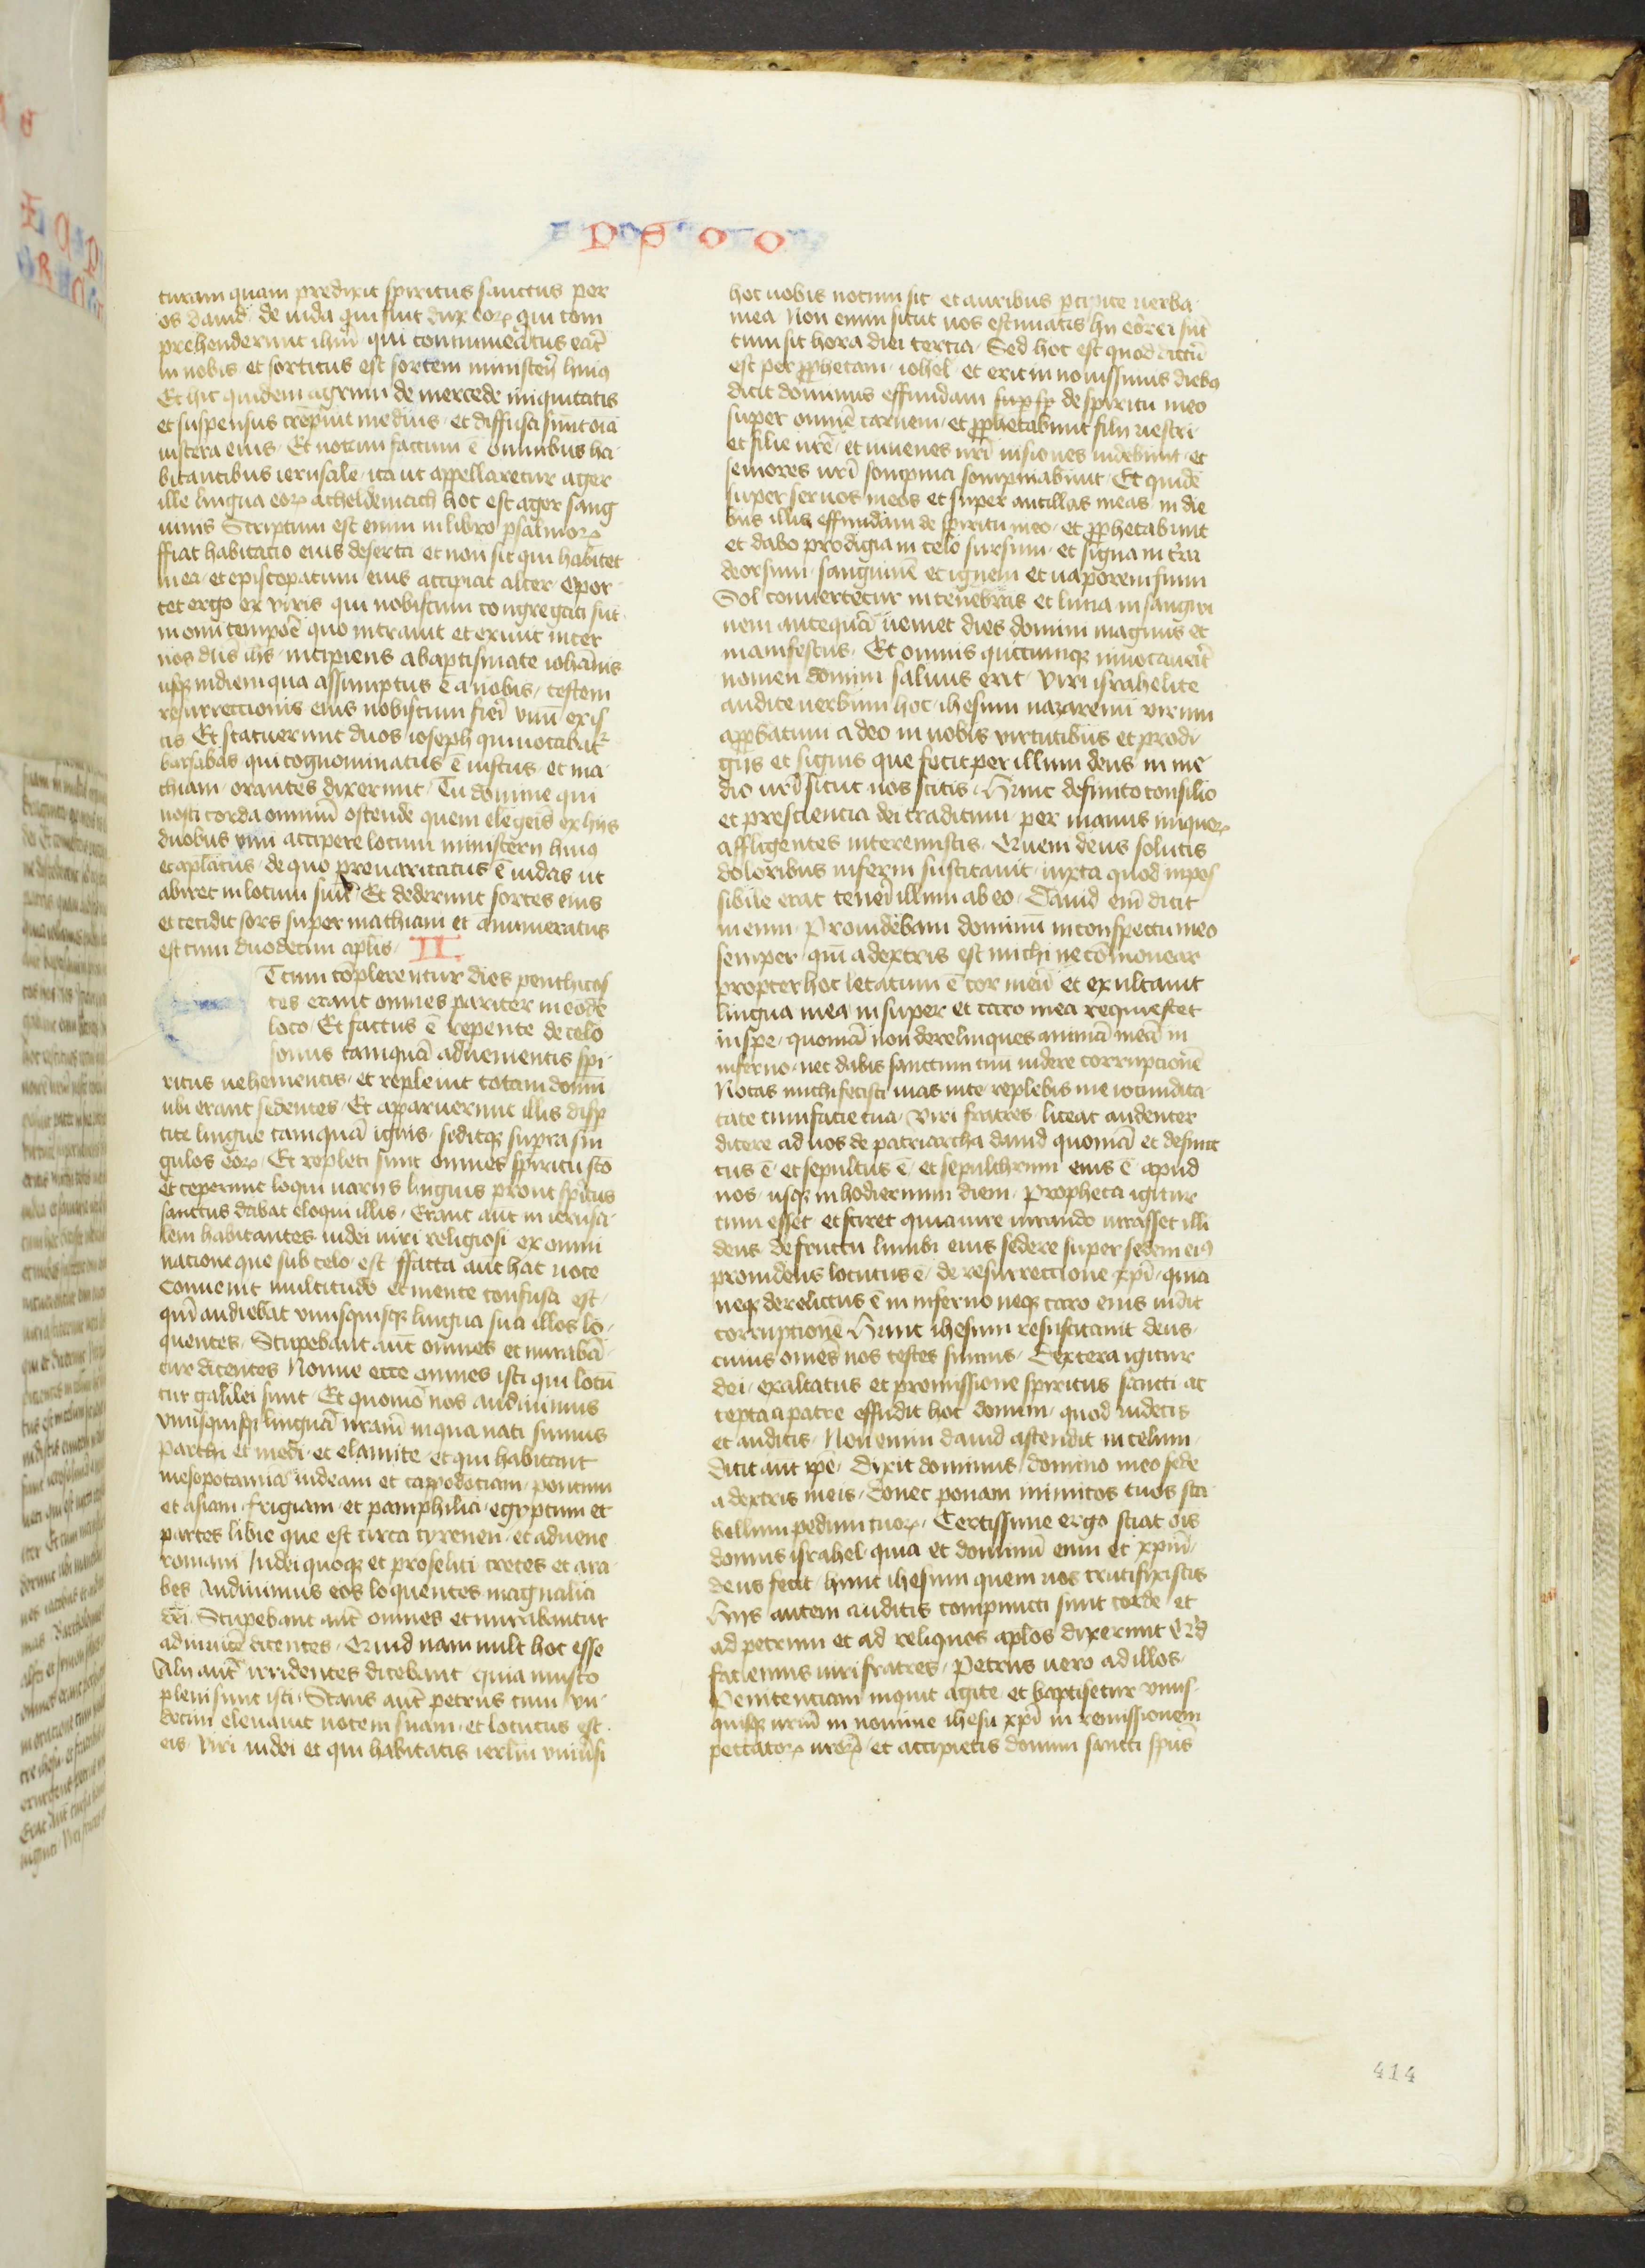 turam quam predixit spiritus sanctus per
os dauid de iuda qui fuit dux eoꝝ qui com
prehenderunt ihm̄ qui connumeratus erāt
in nobis et sortitus est sortem ministerij huiꝰ
Et hic quidem agrum de mercede iniquitatis
et suspensus crepuit medius et diffusa sunt oīa
uiscera eius Et notum factum ē omnibus ha
bitantibus ierusalē ita ut appellaretur ager
ille lingua eoꝝ acheldemach hoc est ager sang
uinis Scriptum est enim in libro psalmoꝝ
ffiat habitatio eius deserta et non sit qui habitet
in ea et episcopatum eius accipiat alter opor
tet ergo ex viris qui nobiscum congregati sūt
in omni tempore quo intrauit et exiuit inter
nos dn̄s ihs̄ incipiens a baptismate iohannis
usqꝫ in diem qua assumptus ē a nobis testem
resurrectionis eius nobiscum fieri vnū ex is
tis Et statuerunt duos ioseph qui uocabatᷣ
barsabas qui cognominatus ē iustus et ma
thiam orantes dixerunt Tu domine qui
nosti corda omniū ostende quem elegeris ex hijs
duobus vnū accipere locum ministerij huiꝰ
et apl̄atus de quo preuaricatus ē iudas ut
abiret in locum suū Et dederunt sortes eius
et cecidit sors super mathiam et annumeratus
est cum duodecim apl̄is II
Et cum cōplerentur dies penthicos
tes erant omnes pariter in eodē
loco Et factus ē repente de celo
sonus tamquā aduenientis spi
ritus uehementis et repleuit totam domū
ubi erant sedentes Et apparuerunt illis disꝑ
tite lingue tamquā ignis seditqꝫ supra sin
gulos eoꝝ Et repleti sunt omnes spiritu sc̄o
et ceperunt loqui uarijs linguis prout spiritus
sanctus dabat eloqui illis Erant aut̄ in ierusa
lem habitantes iudei uiri religiosi ex omni
natione que sub celo est ffacta aut̄ hac uoce
Conuenit multitudo et mente confusa est
qm̄ audiebat vnusquisqꝫ lingua sua illos lo
quentes Stupebant aut̄ omnes et mirabā
tur dicentes Nonne ecce omnes isti qui locū
tur galilei sunt Et quomō nos audiuimus
vnusquisqꝫ linguā nr̄am in qua nati sumus
Parthi et medi et elamite et qui habitant
mesopotamiā iudeam et cappodociam pontum
et asiam frigiam et pamphilia egyptum et
partes libie que est circa cyrenen et aduene
romani Iudei quoqꝫ et proseliti cretes et ara
bes Audiuimus eos loquentes magnalia
dei Stupebant aut̄ omnes et mirabantur
adinuicē dicentes Quid nam uult hoc esse
Alij aut̄ irridentes dicebant quia musto
pleni sunt isti Stans aut̄ petrus cum vn
decim eleuauit uocem suam et locutus est
eis Viri iudei et qui habitatis ierlm̄ vniūsi
hoc uobis notum sit et auribus ꝑcipite uerba
mea Non enim sicut uos estimatis hij ebrei sūt
cum sit hora diei tercia Sed hoc est quod dictū
est per ꝓphetam iohel et erit in nouissimis diebꝰ
dicit dominus effundam de spiritu meo
super omnē carnem et ꝓphetabunt filij uestri
et filie ur̄e et iuuenes ur̄i uisiones uidebunt et
seniores ur̄i sompnia sompniabunt Et quidē
super seruos meos et super ancillas meas in die
bus illis effundam de spiritu meo et ꝓphetabunt
et dabo prodigia in celo sursum et signa in t̄ra
deorsum sanguinē et ignem et uaporem fumi
Sol conuertetur in tenebras et luna in sangui
nem antequā ueniet dies domini magnus et
manifestus Et omnis quicumqꝫ inuocauerit
nomen domini saluus erit Viri israhelite
audite uerbum hoc ihesum nazarenū virum
apꝓbatum a deo in uobis virtutibus et prodi
gijs et signis que fecit per illum deus in me
dio ur̄i sicut uos scitis Hunc definito consilio
et presciencia dei traditum per manus iniquoꝝ
affligentes interemistis Quem deus solutis
doloribus inferni suscitauit iuxta quod inpos
sibile erat teneri illum ab eo Dauid enī dicit
in eum Prouidebam dominū in conspectu meo
semper qm̄ a dextris est michi ne cōmouear
propter hoc letatum ē cor meū et exultauit
lingua mea insuper et caro mea requiescet
in spe quoniā non derelinques animā meā in
inferno nec dabis sanctum tuū uidere corrupcionē
Notas michi fecisti uias uite replebis me iocundita
tate cum facie tua Viri fratres liceat audenter
dicere ad uos de patriarcha dauid quoniā et defunc
tus ē et sepultus ē et sepulchrum eius ē apud
nos usqꝫ in hodiernum diem Propheta igitur
cum esset et sciret quia iure iurando iurasset illi
deus de fructu lumbi eius sedere super sedem eiꝰ
prouidens locutus ē de resurrectione xp̄i quia
neqꝫ derelictus ē in inferno neqꝫ caro eius uidit
corruptionē Hunc ihesum resuscitauit deus
cuius omēs nos testes sumus Dextera igitur
dei exaltatus et promissione spiritus sancti ac
cepta a patre effudit hoc donum quod uidetis
et auditis Non enim dauid ascendit in celum
Dicit aut ip̄e Dixit dominus domino meo sede
a dextris meis Donec ponam inimicos tuos sca
bellum pedum tuoꝝ Certissime ergo sciat oīs
domus israhel quia et dominū eum et xp̄m̄
deus fecit hunc ihesum quem uos crucifixistis
Hijs autem auditis compuncti sunt corde et
ad petrum et ad reliquos ap̄los dixerunt Qͥd
faciemus uiri fratres Petrus uero ad illos
Penitenciam inquit agite et baptisetur vnus
quisqꝫ ur̄m̄ in nomine ihesu xp̄i in remissionem
peccatoꝝ ur̄oꝝ et accipietis donum sancti sp̄us
414